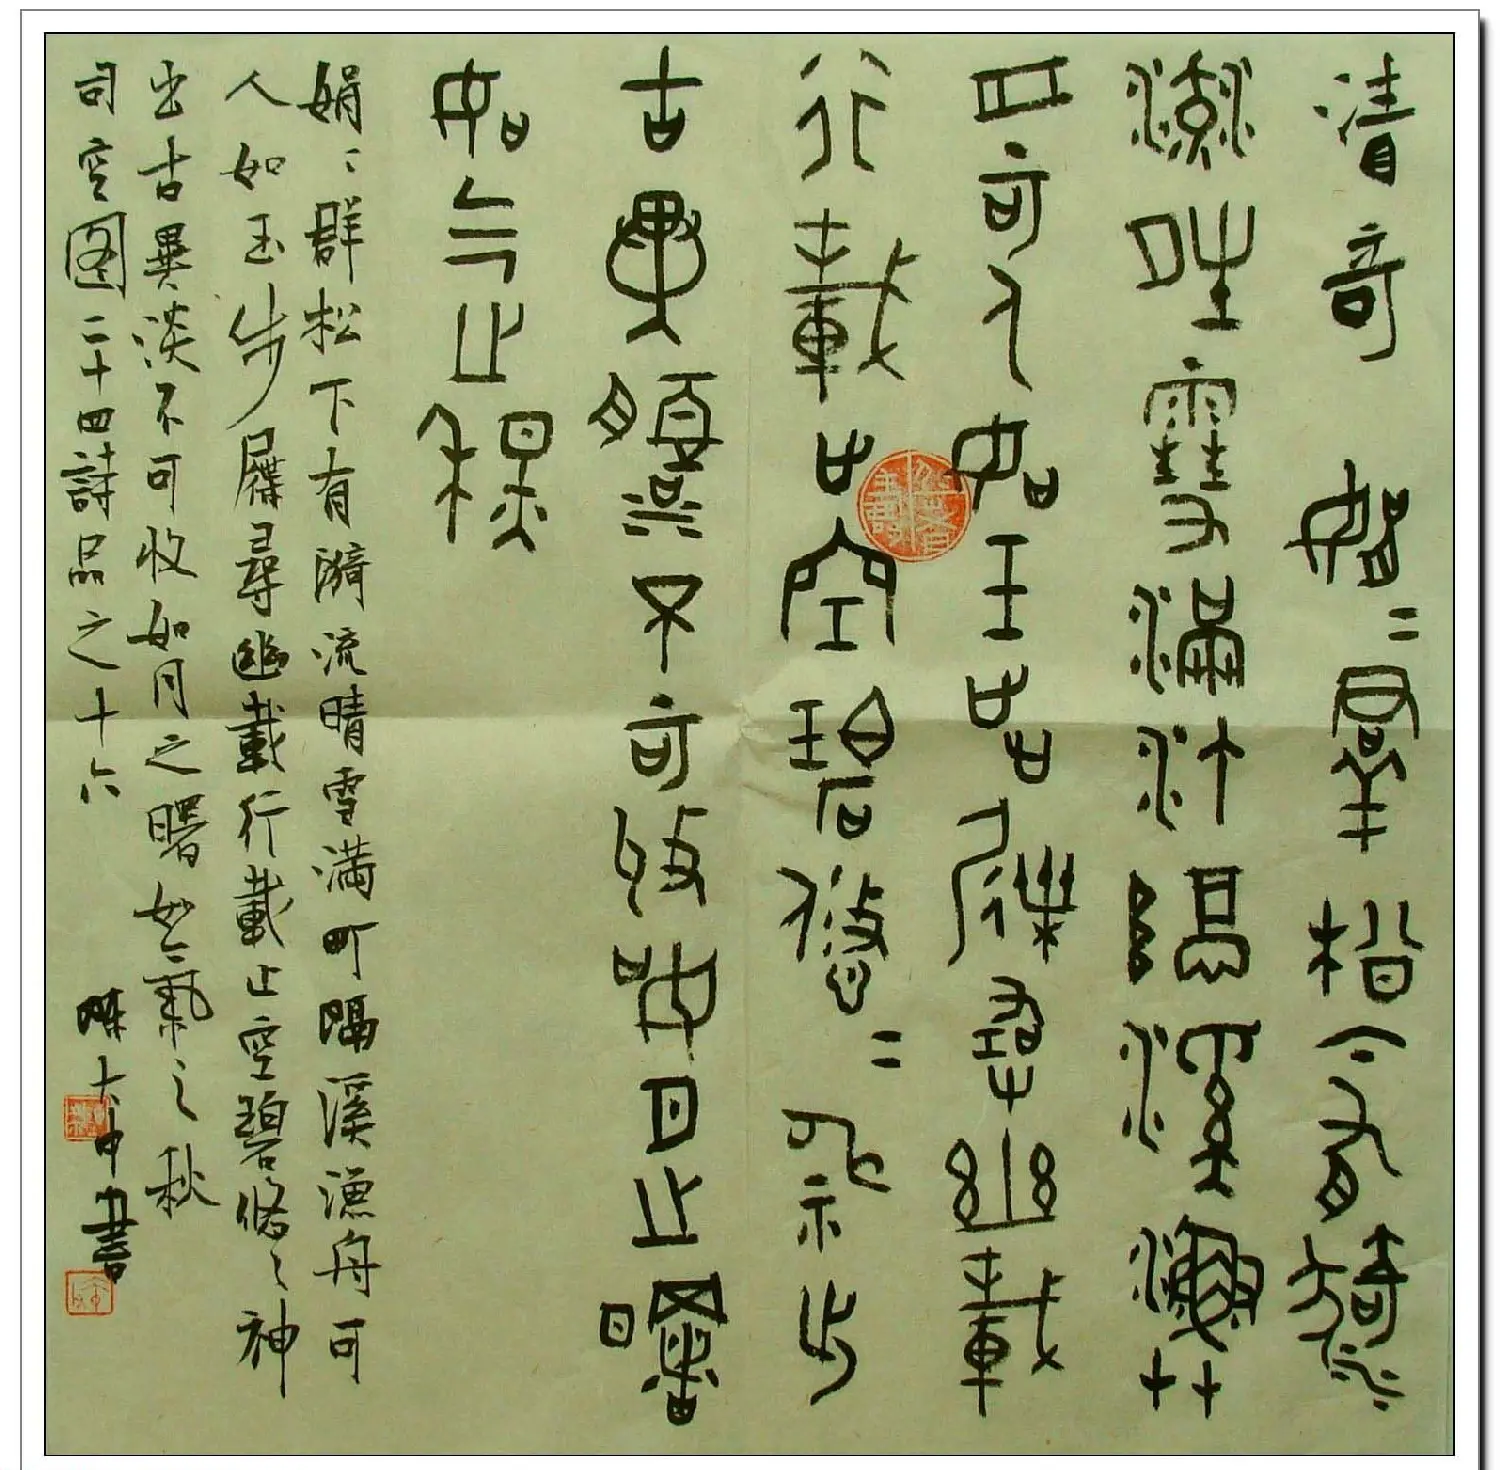 清奇 娟〻群松下有漪
流晴雪滿汀隔溪漁
舟可人如玉步屧尋幽載
行載止空碧悠〻神出
古異淡不可收如月之曙
如气之秋
娟〻群松下有漪流晴雪满町隔溪漁舟可
人如玉步屧尋幽載行載止空碧悠〻神
出古異淡不可收如月之曙如氣之秋
司空图二十四詩品之十六 陳大中書